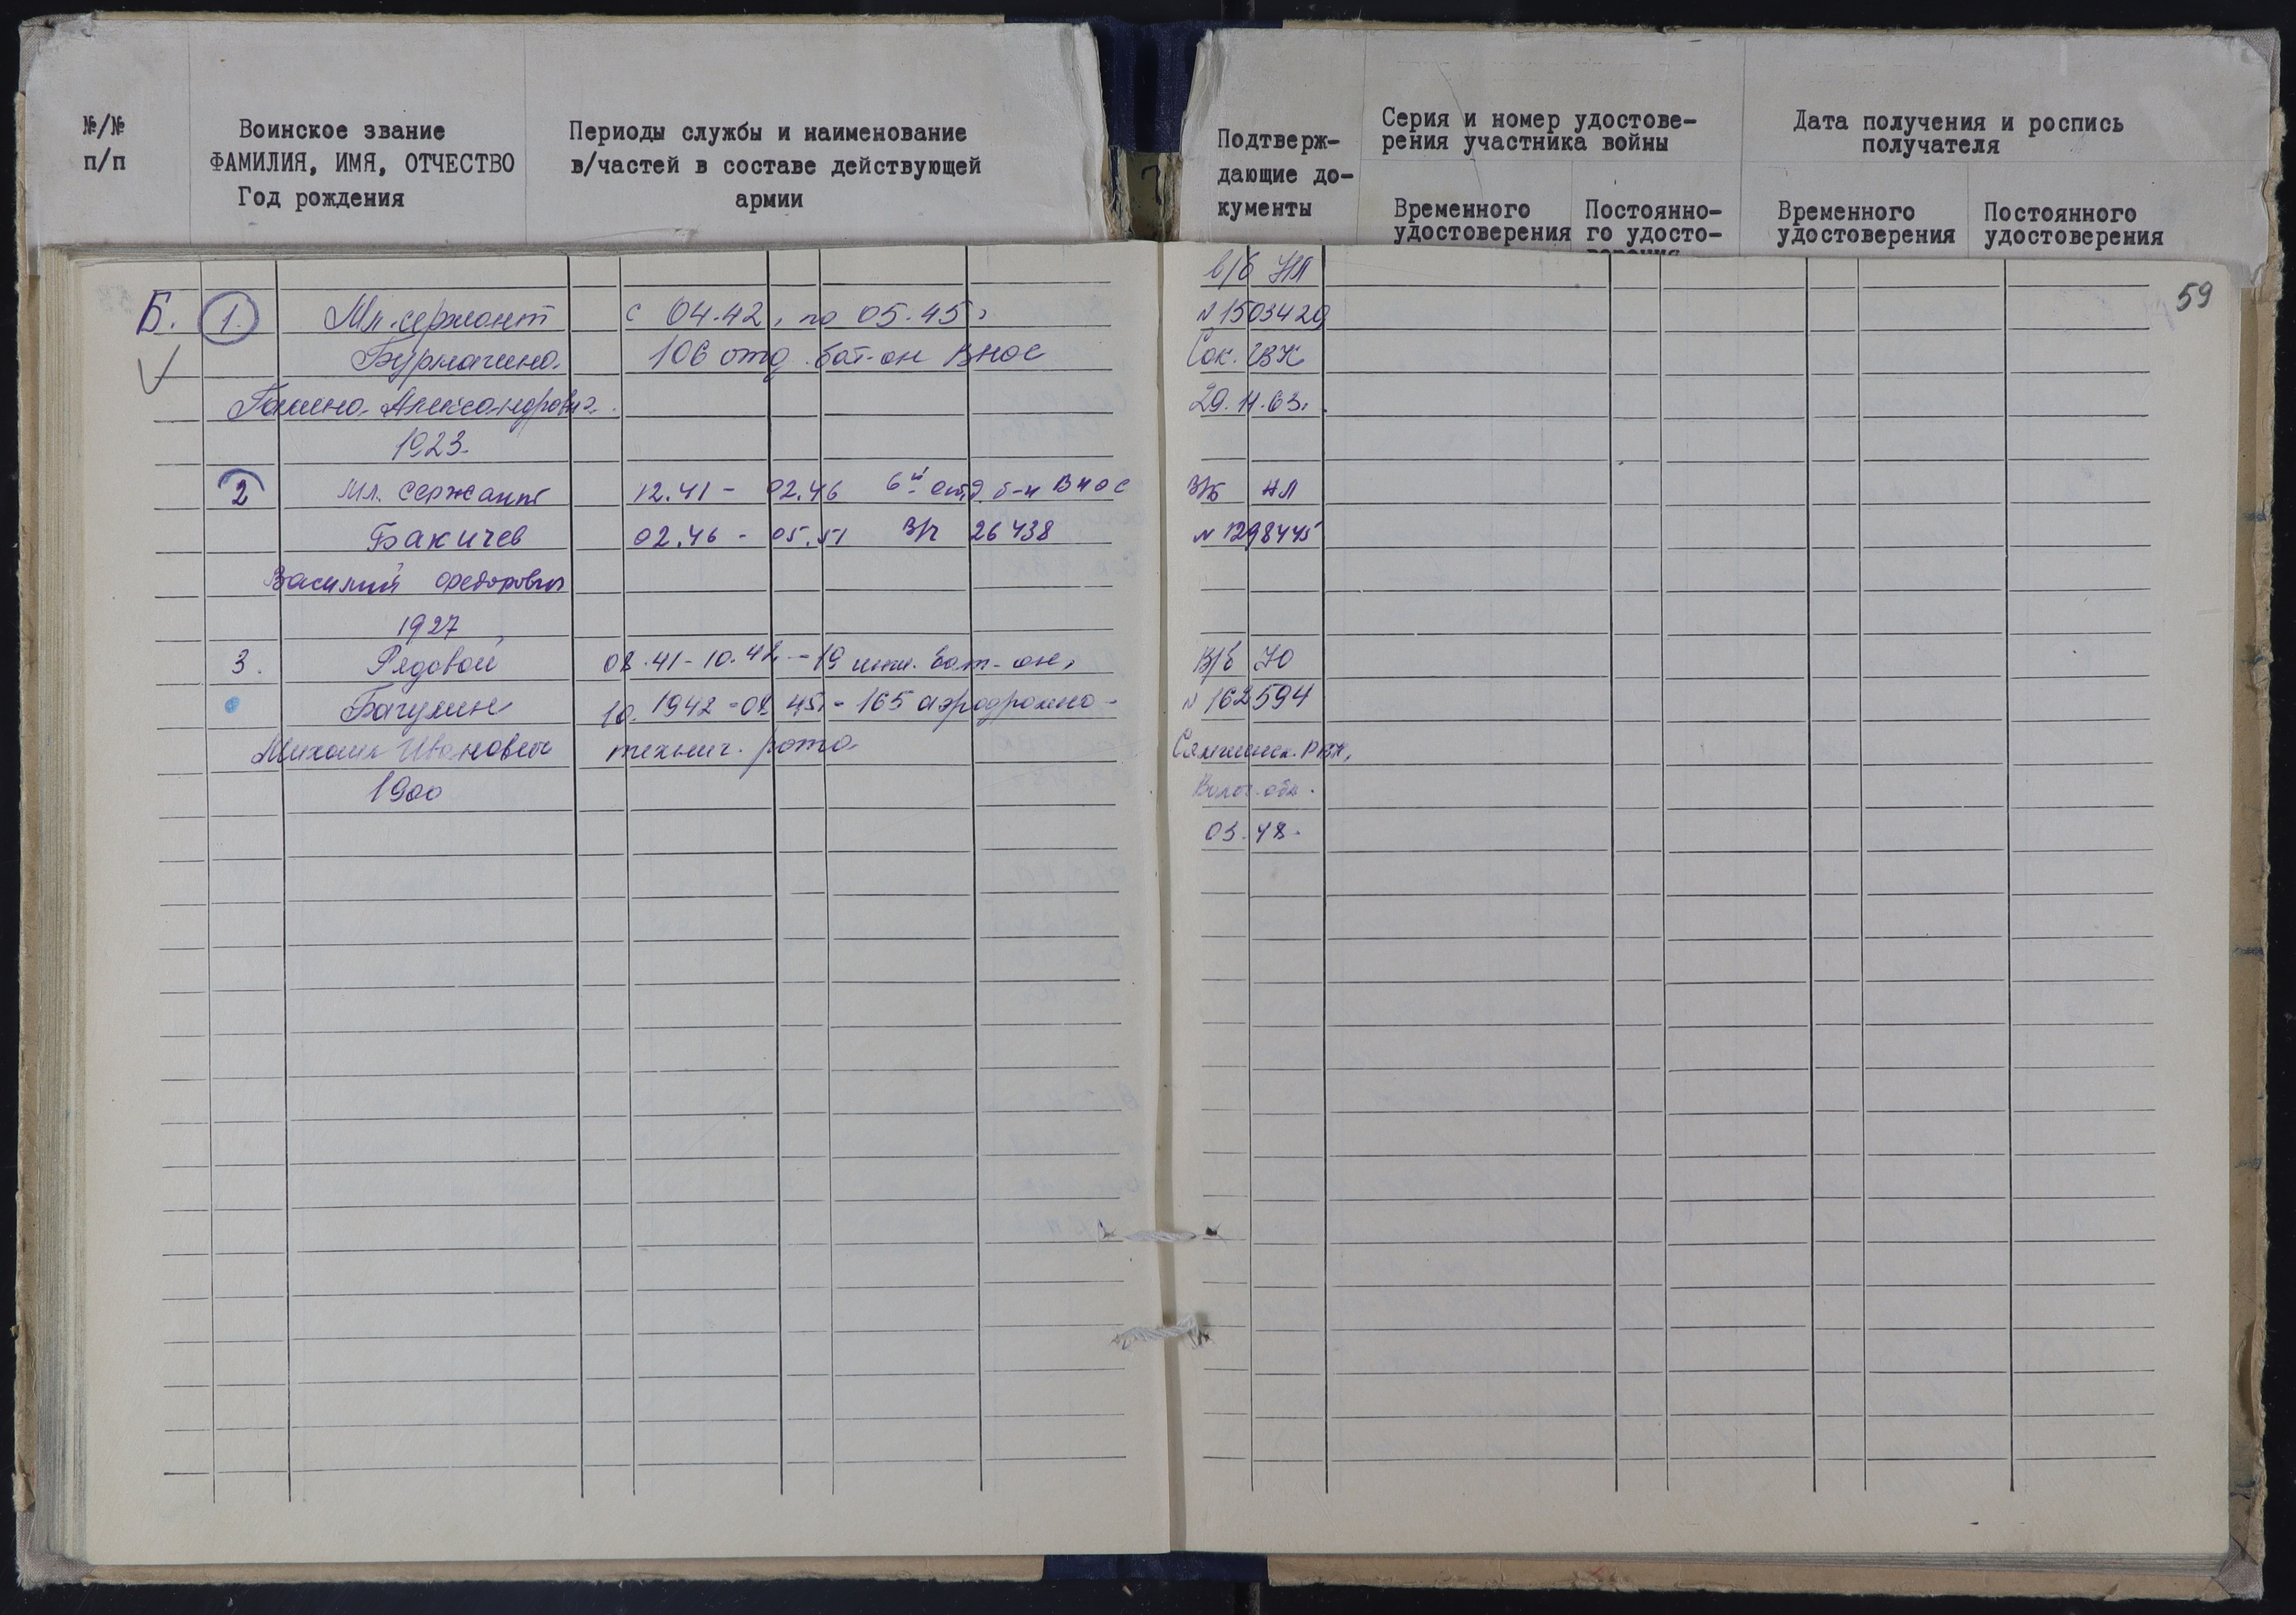 №/№
п/п
Воинское звание
ФАМИЛИЯ, ИМЯ, ОТЧЕСТВО
Год рождения
Периоды службы и наименование
в/частей в составе действующей
армии
Подтверж-
дающие до-
кументы
Серия и номер удостове-
рения участника войны
Временного
удостоверения
Постоянно-
го удосто-
Дата получения и роспись
получателя
Временного
удостоверения
Постоянного
удостоверения
59
в/б НЛ
Б. 1. Мл. сержант с 04.42, по 05.45, N 1503420
Бурмагина 106 отд. бат-он ВНОС Сок. ГВК
Галина Александровна 29.11.63.
1923.
2 Мл. сержант 12.41 - 02.46 6й отд. б-н ВНОС В/Б НЛ
Бакичев 02.46 - 05.51 В/ч 26438 N 1298445
Василий Федорович
1927
3. Рядовой 08.41-10.42 - 19 инж. бат-он, В/б
Багулин 10.1942-08 45. - 165 аэродромно- N 162594
Михаил Иванович технич. рота Сямженск. РВК,
1900 Волог. обл.
03.48.